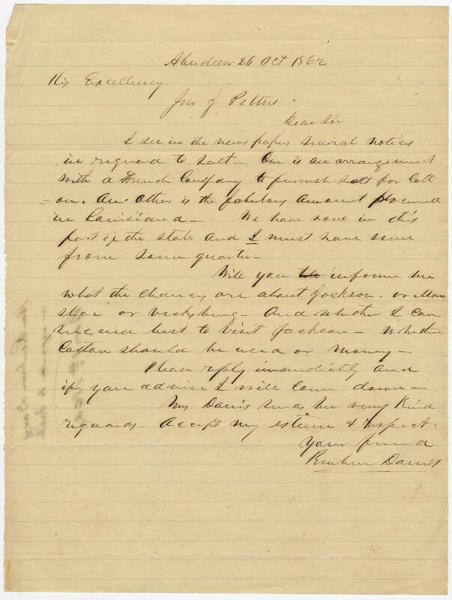 Aberdeen 26 Oct 1862
His Excellency
Jno J. Pettus.
Dear Sir
I see in the news papers several notices
in reguard to salt - One is an arrangement
with a French Company to furnish salt for Cott
=on. An Other is the fabulous amount procured
in Louisiana - We have none in this
part of the state and I must have some
from some quarter -
Will you informe me
what the chances are about Jackson - or
or Vicksburg - And whether I can
best to visit Jackson - Whether
Cotton should be used or money -
Please reply immediately and
if you advise I will come down -
Mrs Davis sends her very Kind
reguards - Accept my esteem & respect
Your friend
Reuben Davis